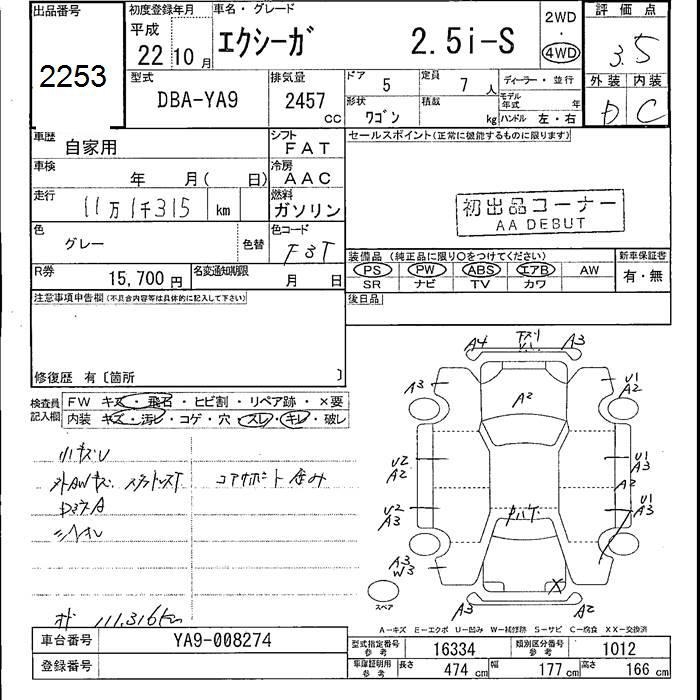 出品番号
2253
初度登録年月
平成
22年10月
車名・グレード
エクシーガ 2.5i-S
2WD
・
4WD
評価点
3.5
外装 内装
D C
型式
DBA-YA9
排気量
2457
cc
ドア
5
定員
7人
ディーラー・並行
形状
ワゴン
積載
kg
モデル年式 年
ハンドル 左・右
車歴
自家用
シフト
FAT
車検
年 月( 日)
冷房
AAC
走行
11万1千315 km
燃料
ガソリン
色
グレー
色替
色コード
F3T
セールスポイント(正常に機能するものに限ります)
初出品コーナー
AA DEBUT
R券
15,700円
名変通知期限
月 日
装備品(純正品に限り○をつけてください)
PS PW ABS エアB AW
SR ナビ TV カワ
新車保証書
有・無
後日品
注意事項申告欄(不具合内容等は具体的に記入して下さい)
修復歴 有〔箇所 〕
検査員記入欄
FW キズ・飛石・ヒビ割・リペア跡・×要
内装 キズ・汚レ・コゲ・穴・スレ・キレ・破レ
オド 111,316km
A4 A3
A3 A2 U1
A2
U2
A2
U1
A3
A2
U2
A3
U1
A3
A3
W3
X
スペア
A3 A2
A－キズ E－エクボ U－凹み W－補修跡 S－サビ C－腐食 XX－交換済
車台番号
YA9-008274
登録番号
型式指定番号
参考
16334
類別区分番号
参考
1012
車庫証明用
参考
長さ 474 cm 幅 177 cm 高さ 166 cm